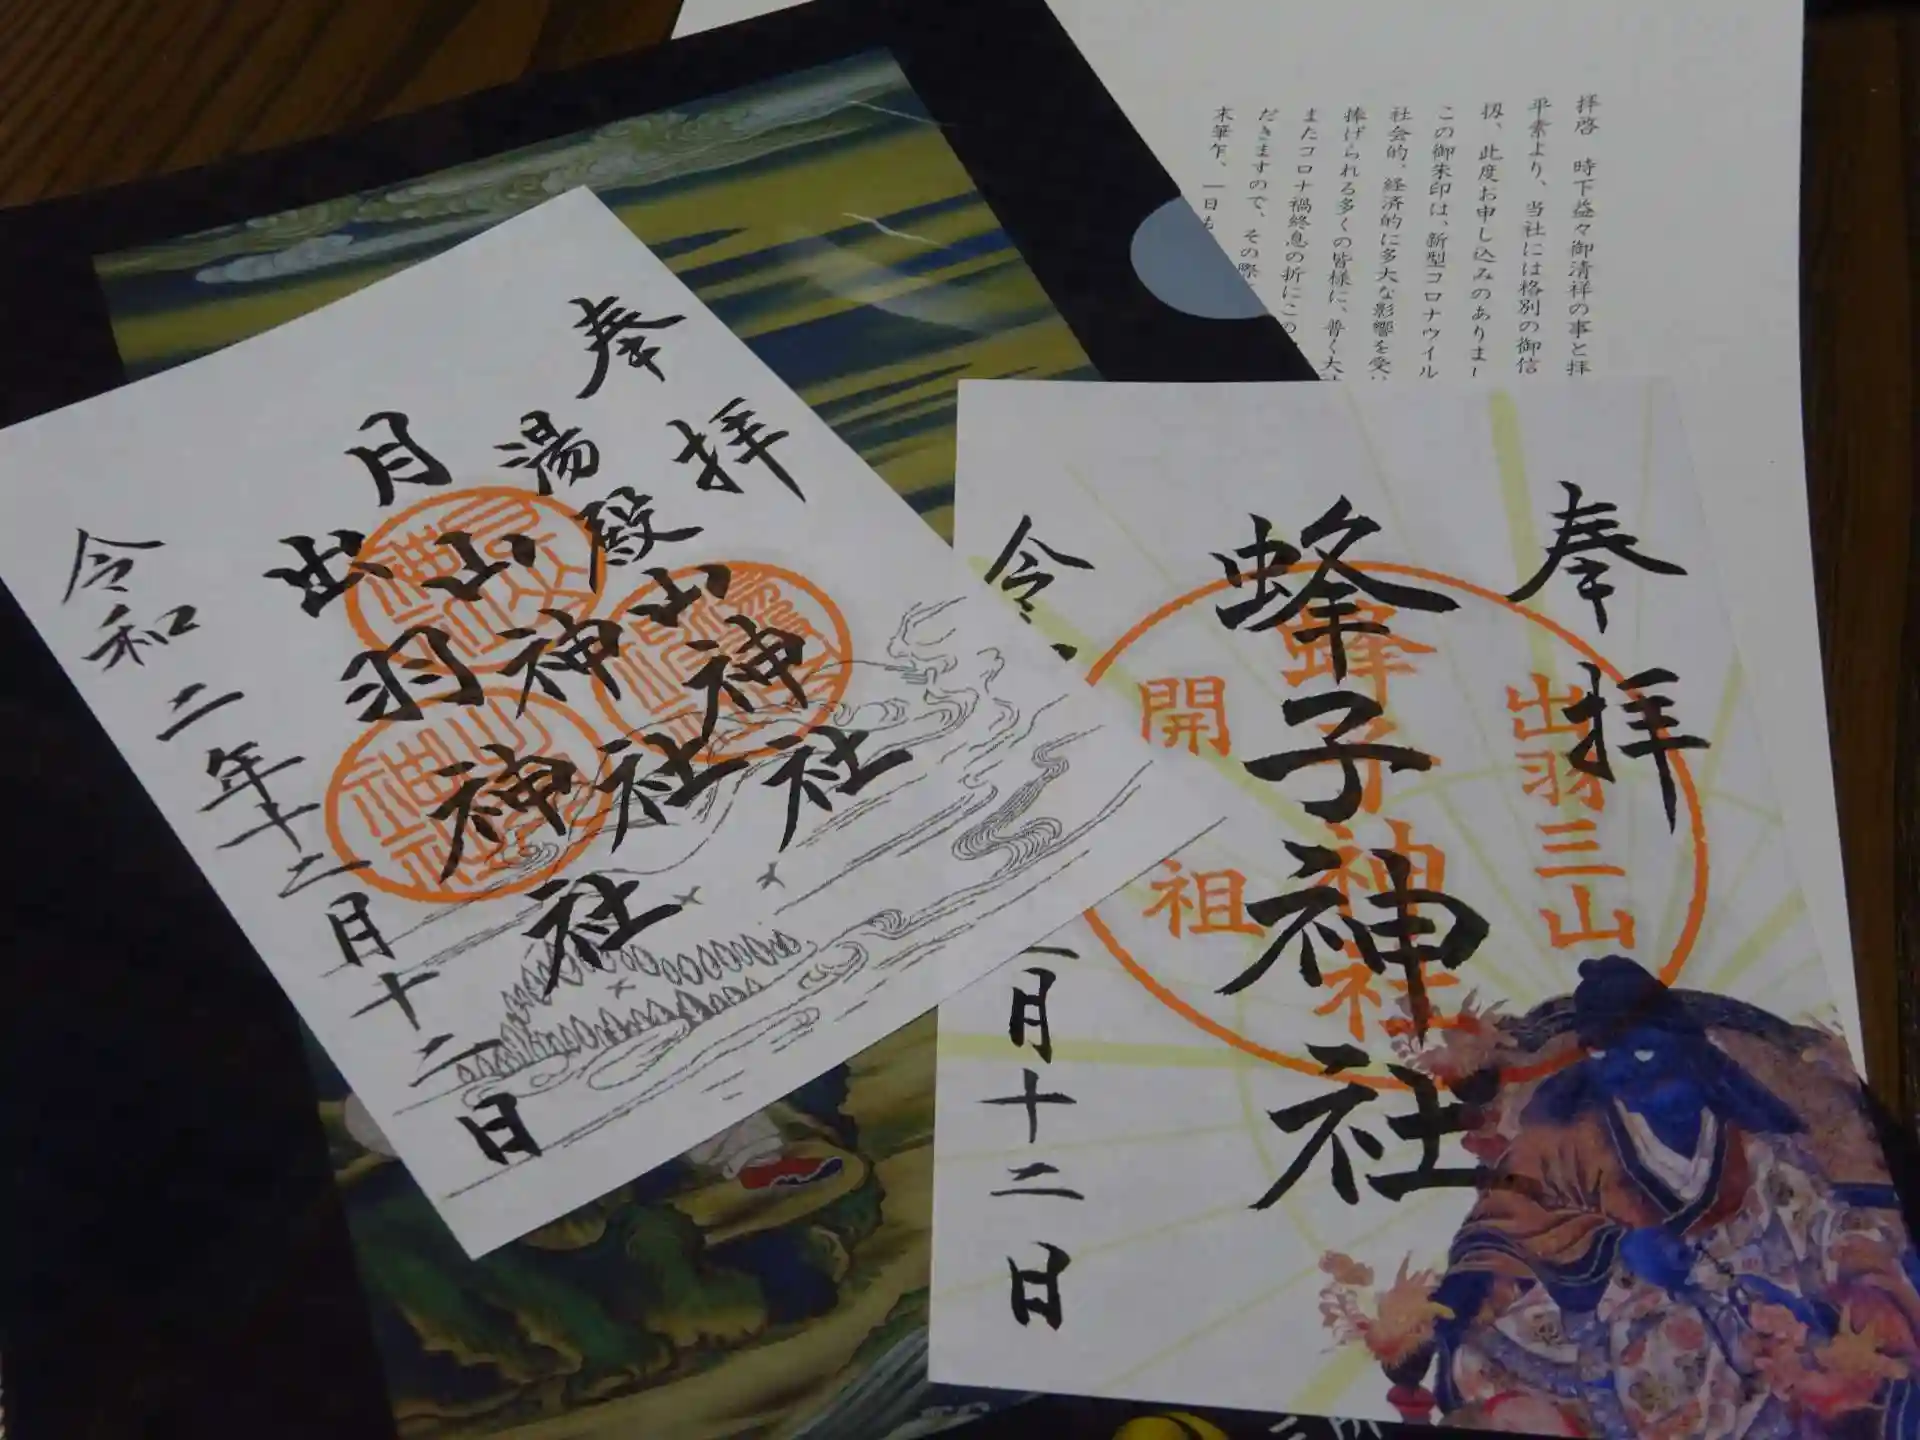 拝啓 時下益々御清祥の事と拝
平素より、当社には格別の御信
扨、此度お申し込みのありまし
この御朱印は、新型コロナウイル
社会的、経済的に多大な影響を受け
捧げられる多くの皆様に、普く大
またコロナ禍終息の折にこの
だきますので、その際
末筆乍、一日も
奉拝
湯殿山神社
月山神社
出羽神社
令和二年十二月十二日
奉拝
出羽三山
蜂子神社
蜂子神社
開祖
令
月十二日